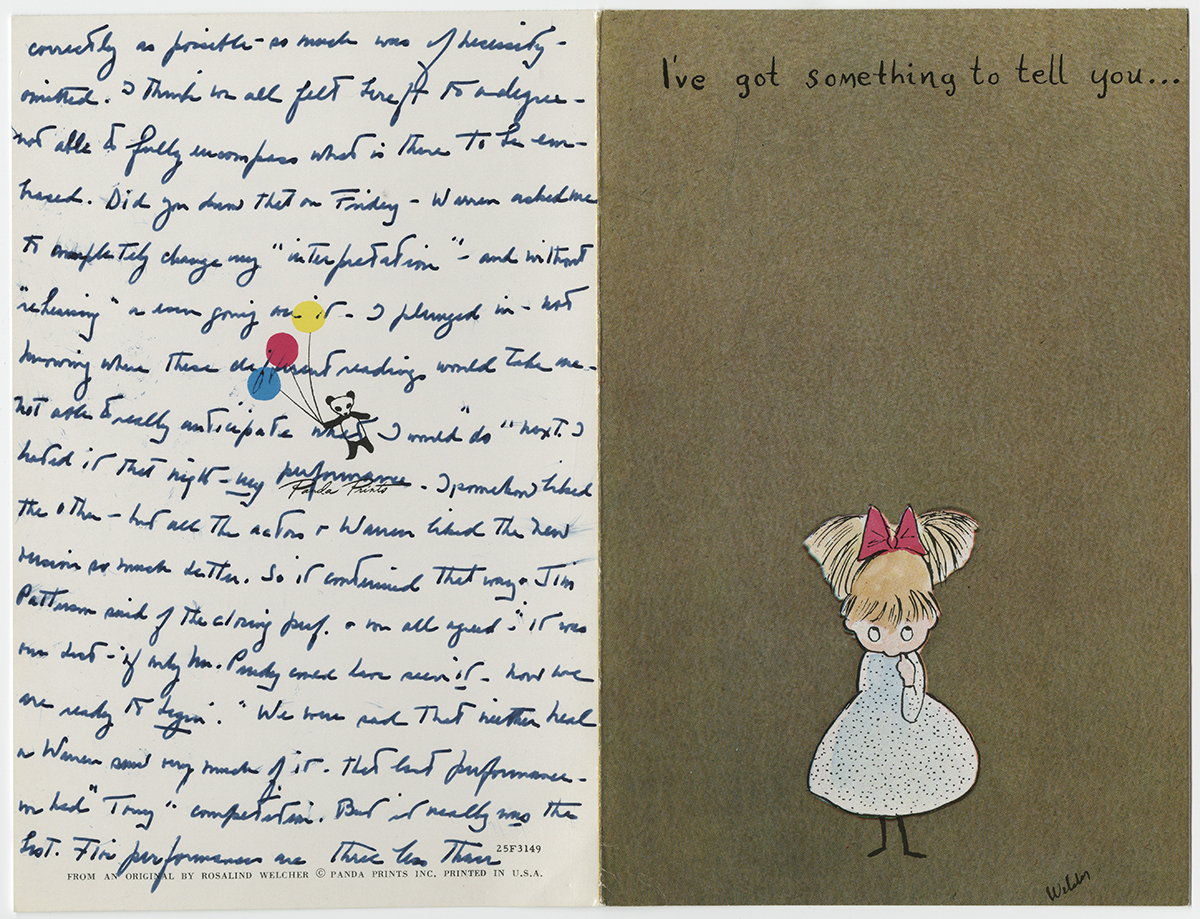 correctly as possible - so much was of necessity -
omitted. I think we all felt bereft to a degree -
not able to fully encompass what is there to be em-
braced. Did you know that on Friday - Warren asked me
to completely change my "interpretation" - and without
"rehearsing" or even going over it - I plunged in - not
knowing where these different readings would take me -
not able to really anticipate what I would "do" next. I
hated it that night - my performance - I somehow liked
Panda Prints
the other - but all the actors & Warren liked the new
version so much better. So it continued that way & Jim
Patterson said of the closing perf. & we all agreed - "it was
our best - if only Mr. Purdy could have seen it - now we
are ready to begin." We were sad that neither Neal
or Warren saw very much of it. That last performance -
we had "Tony" competition. But it really was the
best. Five performances are three less than
25F3149
FROM AN ORIGINAL BY ROSALIND WELCHER © PANDA PRINTS INC. PRINTED IN U.S.A.
I've got something to tell you...
Welcher